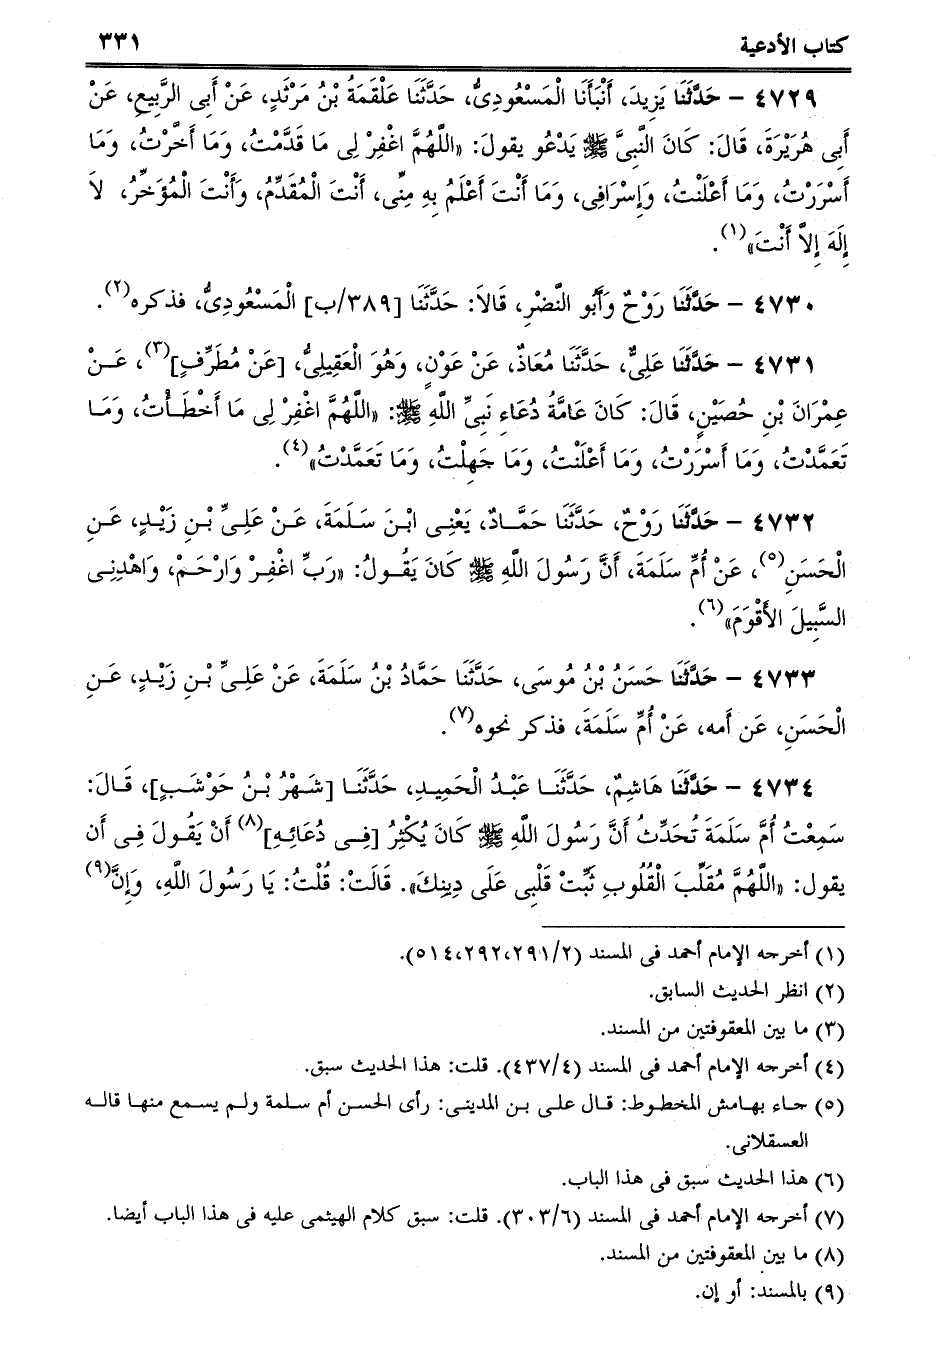 كتاب الأدعية ٣٣١
٤٧٢٩ – حَدَّثَنَا يَزِيدَ، أَنْبَأَنَا الْمَسْعُودِىُّ، حَدَّثَنَا عَلْقَمَةُ بْنُ مَرْثَدٍ، عَنْ أَبِى الرَّبِيعِ، عَنْ
أَبِى هُرَيْرَةَ، قَالَ: كَانَ النَّبِىَّ ﷺ يَدْعُو يقولَ: «اللَّهُمَّ اغْفِرْ لِى مَا قَدَّمْتُ، وَمَا أَخَّرْتُ، وَمَا
أَسْرَرْتُ، وَمَا أَعْلَنْتُ، وَإِسْرَافِى، وَمَا أَنْتَ أَعْلَمُ بِهِ مِنِّى، أَنْتَ الْمُقَدِّمُ، وَأَنْتَ الْمُؤَخِّرُ، لاَ
إِلَهَ إِلاَّ أَنْتَ»(١).
٤٧٣٠ – حَدَّثَنَا رَوْحٌ وَأَبُو النَّضْرِ، قَالاَ: حَدَّثَنَا [٣٨٩/ب] الْمَسْعُودِىُّ، فذكره(٢).
٤٧٣١ – حَدَّثَنَا عَلِىٌّ، حَدَّثَنَا مُعَاذٌ، عَنْ عَوْنٍ، وَهُوَ الْعَقِيلِىُّ، [عَنْ مُطَرِّفٍ](٣)، عَـنْ
عِمْرَانَ بْنِ حُصَيْنٍ، قَالَ: كَانَ عَامَّةُ دُعَاءِ نَبِىِّ اللَّهِ ﷺ: «اللَّهُمَّ اغْفِرْ لِى مَا أَخْطَـأْتُ، وَمَـا
تَعَمَّدْتُ، وَمَا أَسْرَرْتُ، وَمَا أَعْلَنْتُ، وَمَا جَهِلْتُ، وَمَا تَعَمَّدْتُ»(٤).
٤٧٣٢ – حَدَّثَنَا رَوْحٌ، حَدَّثَنَا حَمَّـادٌ، يَعْنِى ابْنَ سَـلَمَةَ، عَـنْ عَلِـىِّ بْـنِ زَيْـدٍ، عَـنِ
الْحَسَنِ(٥)، عَنْ أُمِّ سَلَمَةَ، أَنَّ رَسُولَ اللَّهِ ﷺ كَانَ يَقُـولُ: «رَبِّ اغْفِـرْ وَارْحَـمْ، وَاهْدِنِـى
السَّبِيلَ الأَقْوَمَ»(٦).
٤٧٣٣ – حَدَّثَنَا حَسَنُ بْنُ مُوسَى، حَدَّثَنَا حَمَّادُ بْنُ سَلَمَةَ، عَنْ عَلِـىِّ بْـنِ زَيْـدٍ، عَـنِ
الْحَسَنِ، عَن أمه، عَنْ أُمِّ سَلَمَةَ، فذكر نحوه(٧).
٤٧٣٤ – حَدَّثَنَا هَاشِمٌ، حَدَّثَنَـا عَبْدُ الْحَمِيـدِ، حَدَّثَنَـا [شَـهْرُ بْـنُ حَوْشَـبٍ]، قَـالَ:
سَمِعْتُ أُمَّ سَلَمَةَ تُحَدِّثُ أَنَّ رَسُولَ اللَّهِ ﷺ كَانَ يُكْثِرُ [فِـى دُعَائِـهِ](٨) أَنْ يَقُـولَ فِـى أَن
يقول: «اللَّهُمَّ مُقَلِّبَ الْقُلُوبِ ثَبِّتْ قَلْبِى عَلَى دِينِكَ». قَالَتْ: قُلْتُ: يَا رَسُولَ اللَّهِ، وَإِنَّ(٩)
(١) أخرجه الإمام أحمد فى المسند (٢٩١/٢،٢٩٢،٥١٤).
(٢) انظر الحديث السابق.
(٣) ما بين المعقوفتين من المسند.
(٤) أخرجه الإمام أحمد فى المسند (٤٣٧/٤). قلت: هذا الحديث سبق.
(٥) جـاء بهـامش المخطـوط: قـال علـى بـن المدينـى: رأى الحسـن أم سـلمة ولـم يسـمع منهـا قالـه
العسقلانى.
(٦) هذا الحديث سبق فى هذا الباب.
(٧) أخرجه الإمام أحمد فى المسند (٣٠٣/٦). قلت: سبق كلام الهيثمى عليه فى هذا الباب أيضا.
(٨) ما بين المعقوفتين من المسند.
(٩) بالمسند: أو إن.